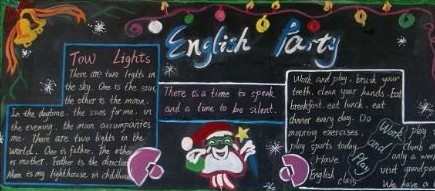 English Party
Tow Lights
There are two lights in
the sky. One is the sun,
the other is the moon.
In the daytime, the sun for me, in
the evening, the moon accompanies
me. There are two lights in the
world. One is father. The other
is mother. Father is the direction
Mom is my lighthouse in childhood
There is a time to speak
and a time to be silent.
Work and play. brush your
teeth. clean your hands. Eat
breakfast. eat lunch. eat
dinner every day. Do
morning exercises.
play sports today.
Have
English class
Work
and
Play
climb
only a week
visit grandpa
We have a